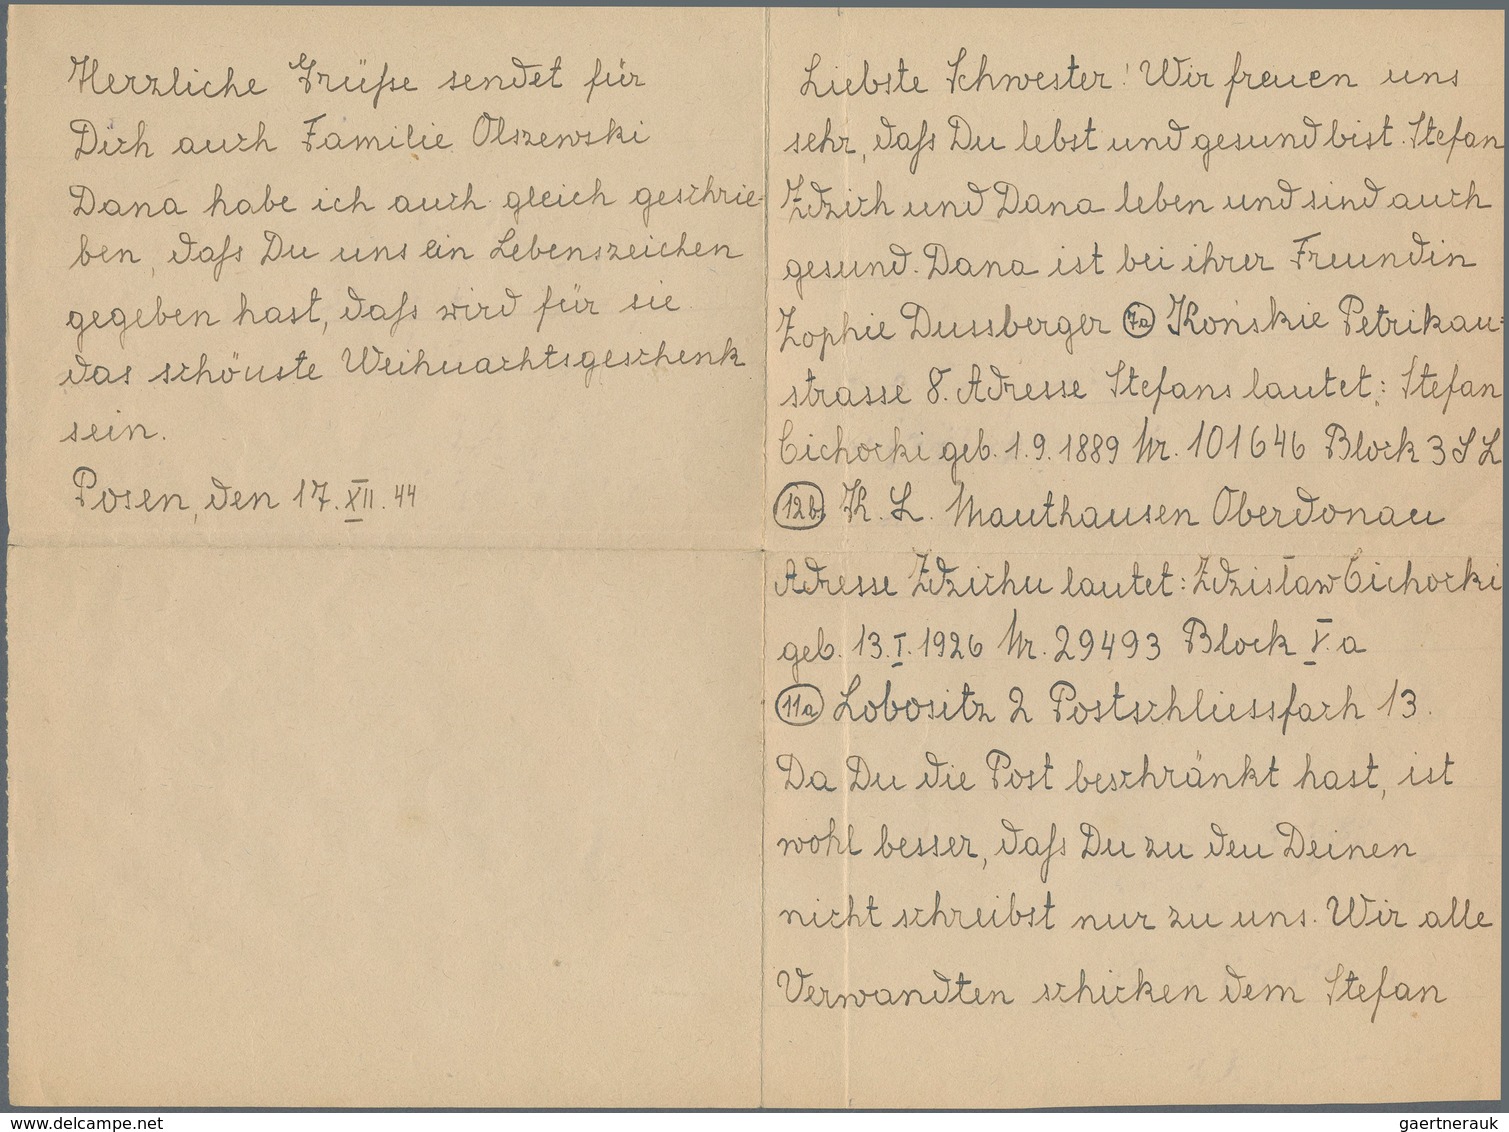 Herzliche Grüße sendet für
Dich auch Familie Olszewski
Dana habe ich auch gleich geschrie-
ben, daß Du uns ein Lebenszeichen
gegeben hast, daß wird für sie
das schönste Weihnachtsgeschenk
sein.
Posen, den 17. XII. 44
Liebste Schwester! Wir freuen uns
sehr, daß Du lebst und gesund bist. Stefan
Zdzich und Dana leben und sind auch
gesund. Dana ist bei ihrer Freundin
Zophie Dussberger 7a Końskie Petrikau=
strasse 8. Adresse Stefans lautet: Stefan
Cichocki geb. 1.9.1889 Nr. 101646 Block 3 S L
12b K. L. Mauthausen Oberdonau
Adresse Zdzichu lautet: Zdzisław Cichocki
geb. 13.I.1926 Nr. 29493 Block V. a
11a Lobositz 2 Postschliessfach 13.
Da Du die Post beschränkt hast, ist
wohl besser, daß Du zu den Deinen
nicht schreibst nur zu uns. Wir alle
Verwandten schicken dem Stefan
www.delcampe.net
gaertnerauk